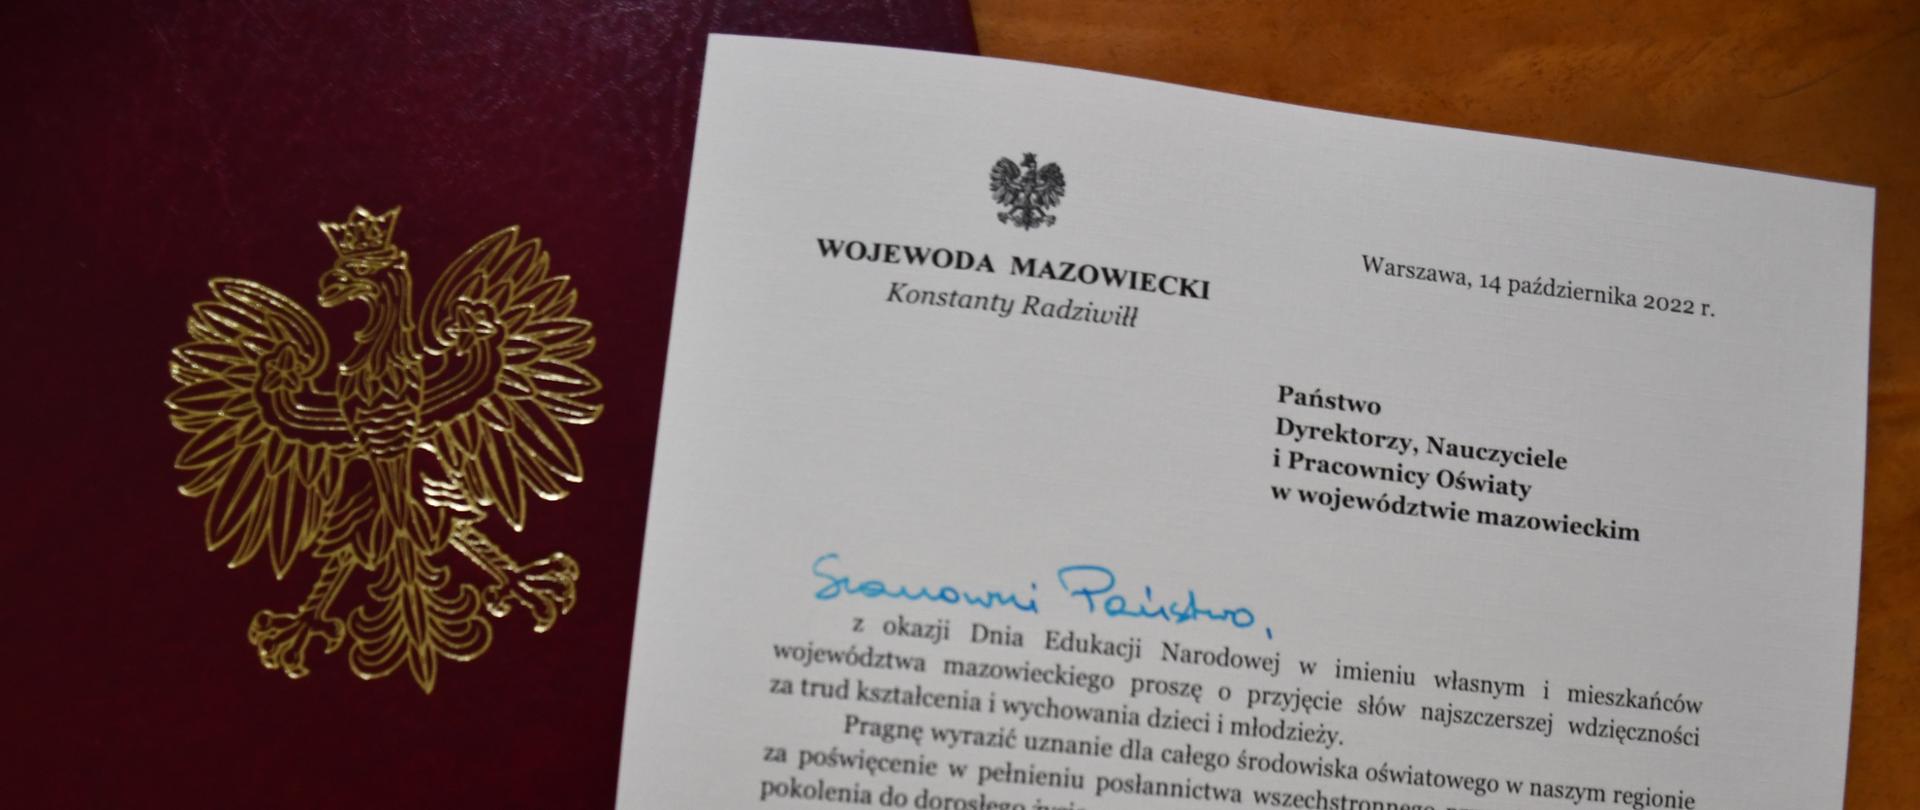 WOJEWODA MAZOWIECKI
Konstanty Radziwiłł
Warszawa, 14 października 2022 r.
Państwo
Dyrektorzy, Nauczyciele
i Pracownicy Oświaty
w województwie mazowieckim
Szanowni Państwo,
z okazji Dnia Edukacji Narodowej w imieniu własnym i mieszkańców
województwa mazowieckiego proszę o przyjęcie słów najszczerszej wdzięczności
za trud kształcenia i wychowania dzieci i młodzieży.
Pragnę wyrazić uznanie dla całego środowiska oświatowego w naszym regionie
za poświęcenie w pełnieniu posłannictwa wszechstronnego
pokolenia do dorosłego